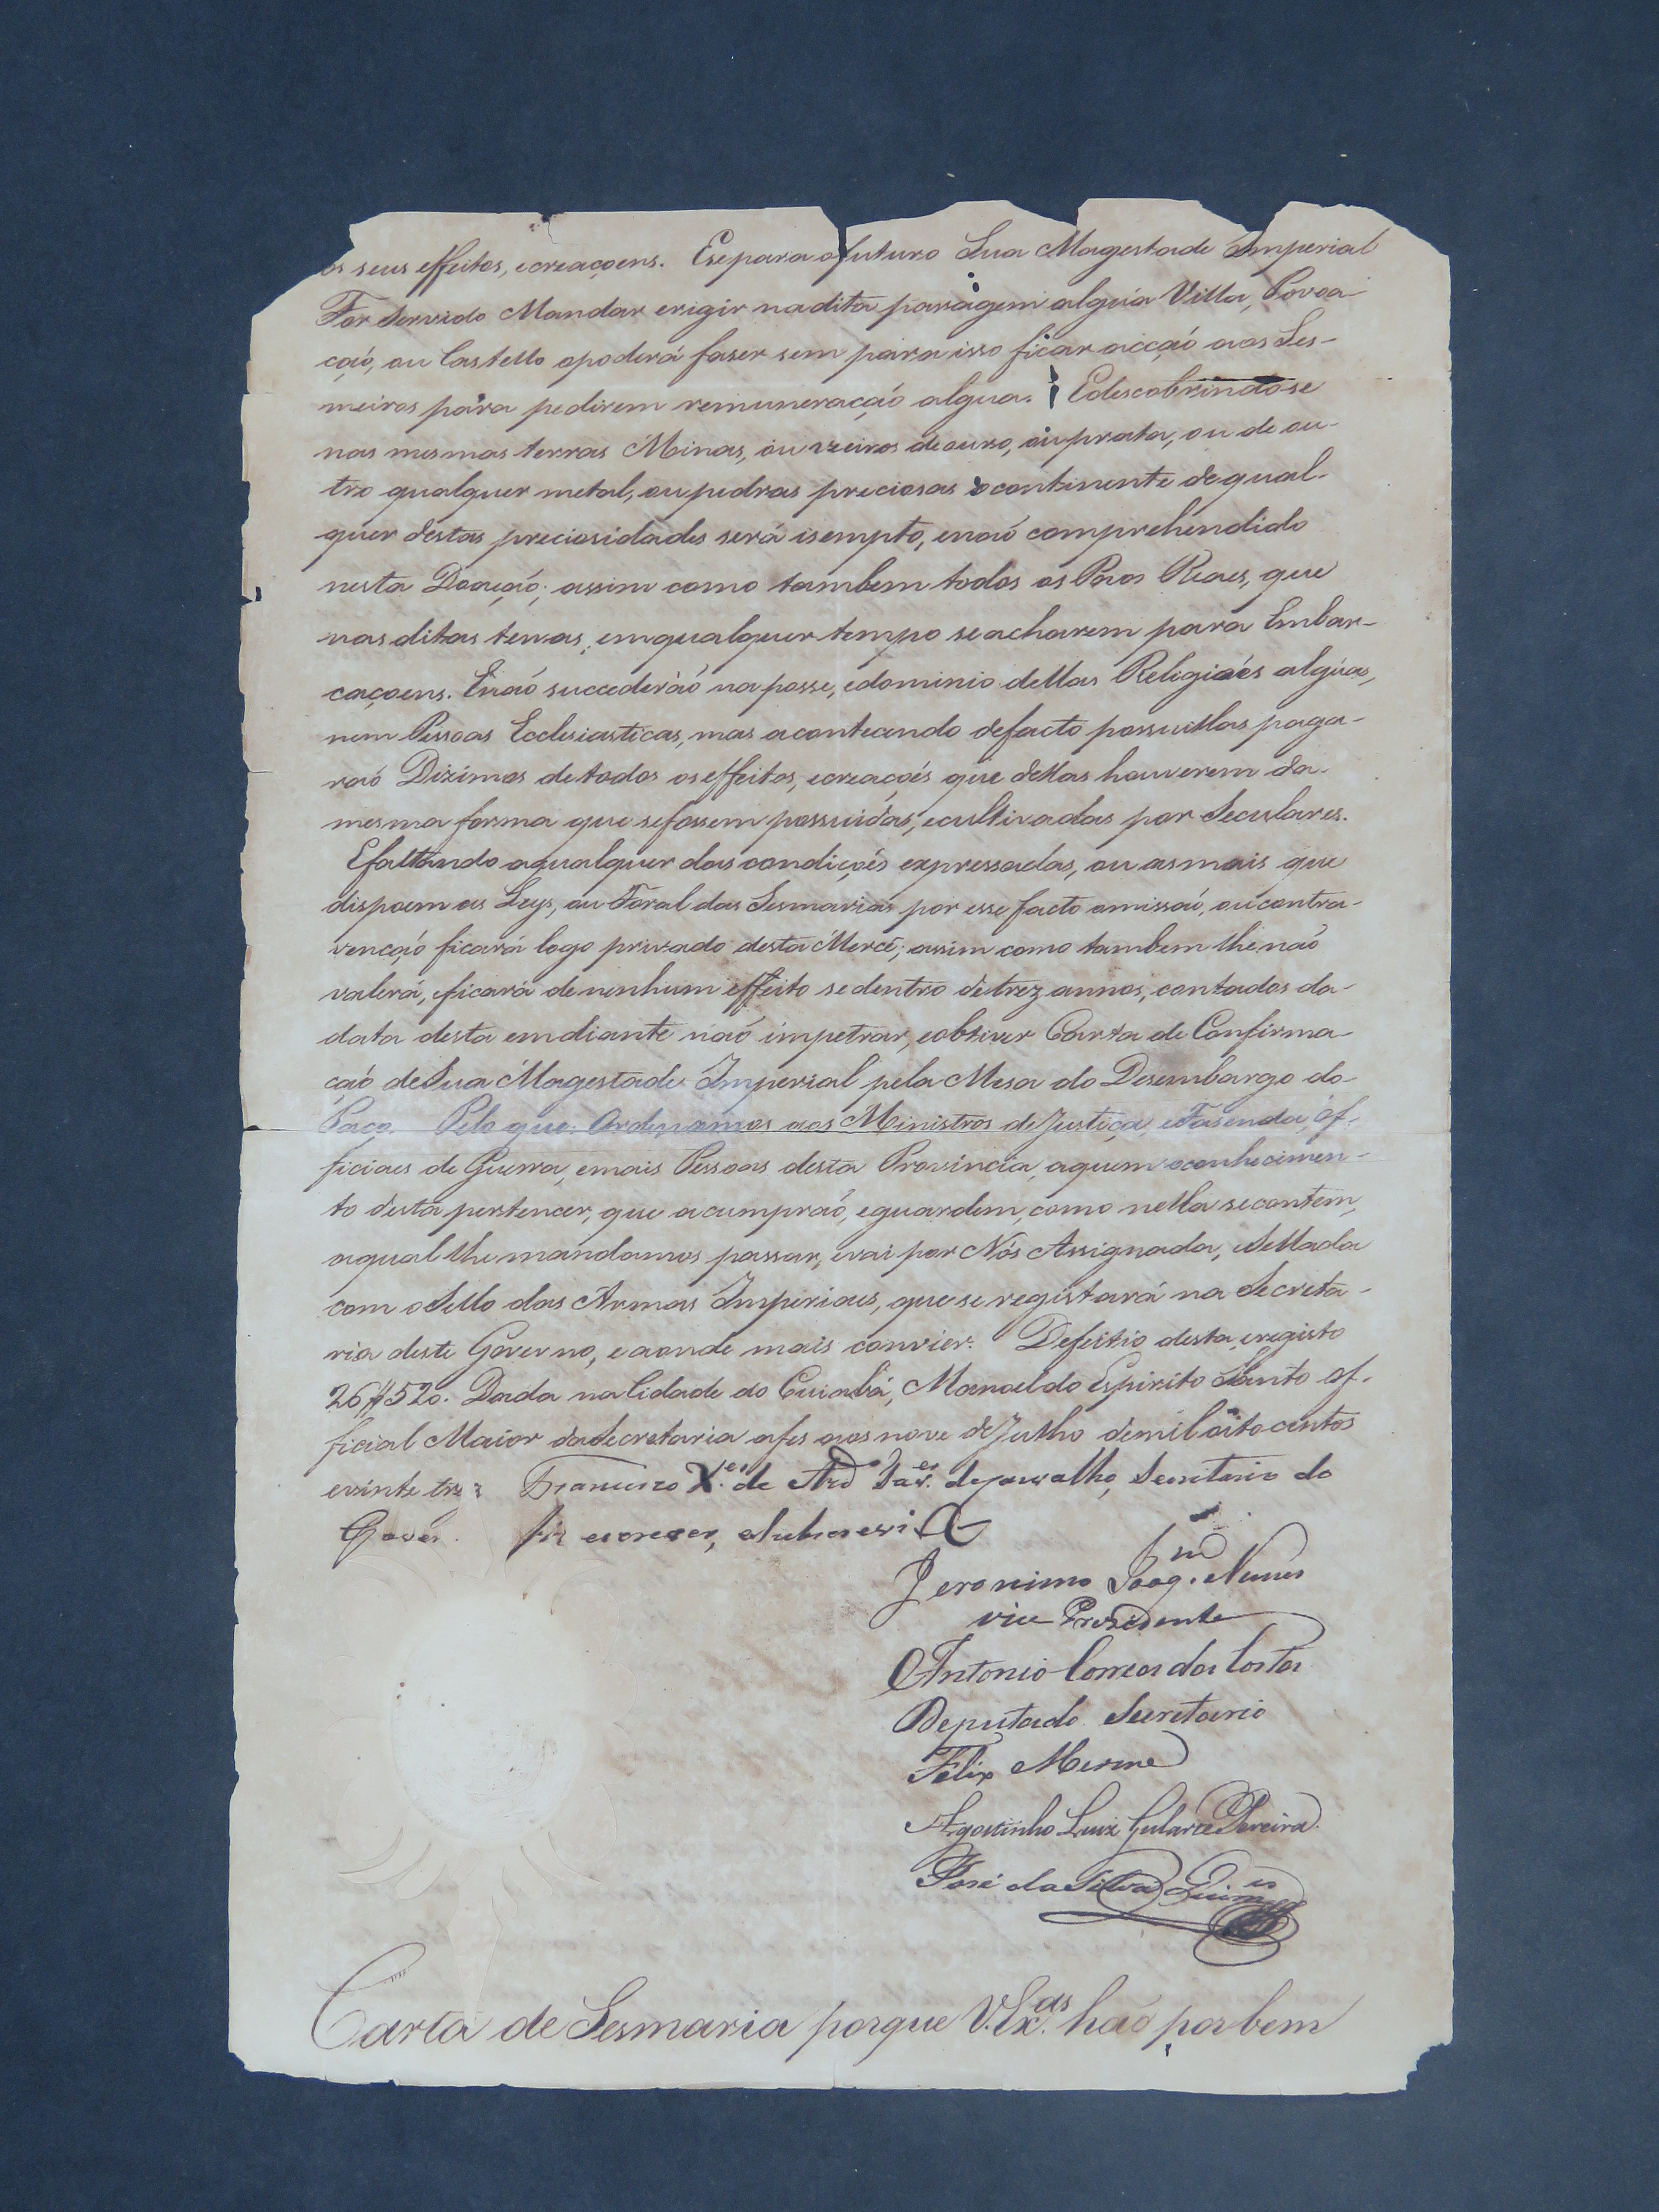 os seus effeitos, ecreaçoens. Esepara ofuturo Sua Magestade Imperial
For Servido Mandar erigir nadita paragem algúa Villa, Povoa-
çaõ, ou Castello opoderá faser sem para isso ficar acçaõ aos Ses-
meiros para pedirem remuneraçaõ algua. Edescobrindo-se
nas mesmas terras Minas, ou vieiros de ouro, ou prata, ou de ou-
tro qualquer metal, ou pedras preciosas o continente de qual-
quer destas preciosidades será isempto, enaõ comprehendido
nesta Doaçaõ; assim como tambem todos os Páos Reaes, que
nas ditas terras, emqualquer tempo se acharem para Embar-
caçoens. Enaõ succederáõ na posse, edominio dellas Religioẽs algúas,
nem Pessoas Ecclesiasticas, mas acontecendo defacto possuillas paga-
raõ Dizimos detodos os effeitos, ecreaçoẽs que dellas houverem da-
mesma forma que sefossem possuidas, ecultivadas por Seculares.
Efaltando aqualquer das condiçoẽs expressadas, ou as mais que
dispoem as Leys, ou Foral das Sesmarias por esse facto omissaõ, ou contra-
vençaõ ficará logo privado desta Mercê; assim como tambem lhe naõ
valerá, eficará denenhum effeito se dentro detrez annos, contados da-
data desta emdiante naõ impetrar, eobtiver Carta de Confirma-
çaõ deSua Magestade Imperial pela Mesa do Desembargo do-
Paço. Pelo que: Ordenamos aos Ministros deJustiça, eFasenda, Of-
ficiaes de Guerra, emais Pessoas desta Provincia, aquem oconhecimen-
to desta pertencer, que acumpraõ, eguardem, como nella secontem,
aqual lhe mandamos passar, evai por Nós Assignada, eSellada
com oSello das Armas Imperiaes, que se registará na Secreta-
ria deste Governo, eaonde mais convier. Defeitio desta, eregisto
26#520. Dada na Cidade do Cuiabá, Manoel do Espirito Santo Of-
ficial Maior daSecretaria afes aos nove deJulho demil oito centos
evinte tres Francisco X.er de Ard.o de Carvalho, Secretario do
Gover. fiz escrever, esubscrevi
Jeronimo Joaq.m Nunes
vice Presidente
Antonio Correa da Costa
Deputado Secretario
Felix Merme
Agostinho Luiz Gularte Pereira.
José da Silva Guim.es
Carta de Sesmaria porque V.Ex.as haõ por bem